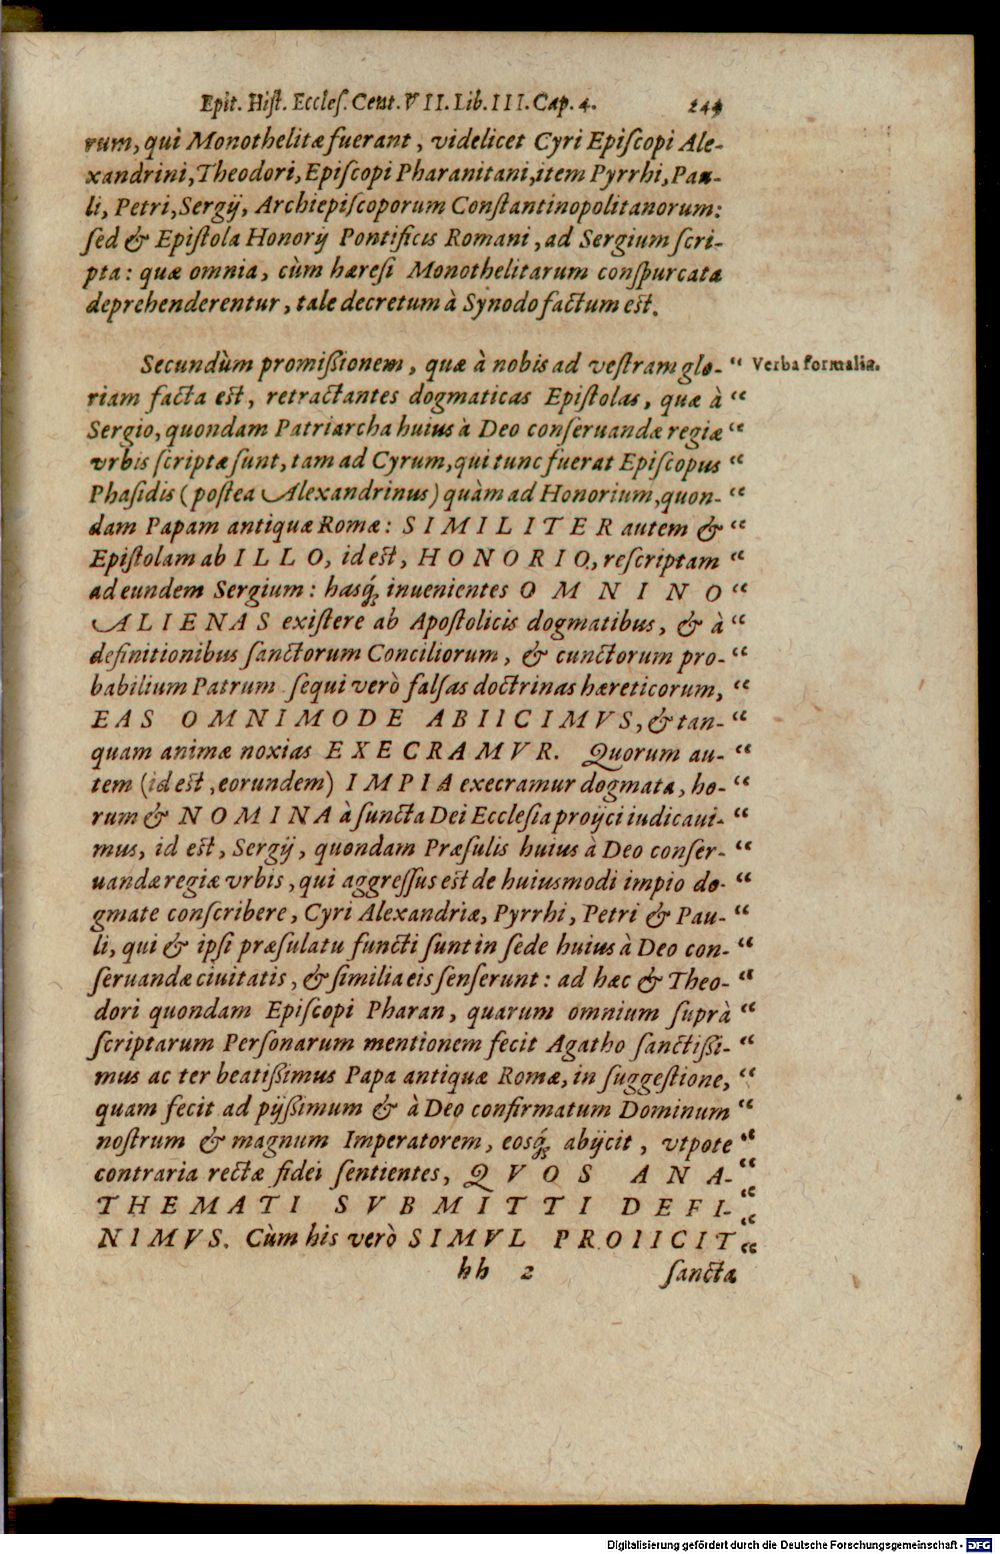 Epit. Hiſt. Eccleſ. Cent. VII. Lib. III. Cap. 4. 244
rum, qui Monothelitæ fuerant, videlicet Cyri Epiſcopi Ale-
xandrini, Theodori, Epiſcopi Pharanitani, item Pyrrhi, Pau-
li, Petri, Sergij, Archiepiſcoporum Conſtantinopolitanorum:
ſed & Epiſtola Honorij Pontificis Romani, ad Sergium ſcri-
pta: quæ omnia, cùm hæreſi Monothelitarum conſpurcata
deprehenderentur, tale decretum à Synodo factum est.
Secundùm promißionem, quæ à nobis ad veſtram glo- “ Verba formalia.
riam facta est, retractantes dogmaticas Epiſtolas, quæ à “
Sergio, quondam Patriarcha huius à Deo conſeruandæ regiæ “
vrbis ſcriptæ ſunt, tam ad Cyrum, qui tunc fuerat Epiſcopus “
Phaſidis (poſtea Alexandrinus) quàm ad Honorium, quon- “
dam Papam antiquæ Romæ: SIMILITER autem & “
Epiſtolam ab ILLO, id est, HONORIO, reſcriptam “
ad eundem Sergium: hasq́; inuenientes OMNINO “
ALIENAS exiſtere ab Apoſtolicis dogmatibus, & à “
definitionibus ſanctorum Conciliorum, & cunctorum pro- “
babilium Patrum ſequi verò falſas doctrinas hæreticorum, “
EAS OMNIMODE ABIICIMVS, & tan- “
quam animæ noxias EXECRAMVR. Quorum au- “
tem (id est, eorundem) IMPIA execramur dogmata, ho- “
rum & NOMINA à ſancta Dei Eccleſia proijci iudicaui- “
mus, id est, Sergij, quondam Præſulis huius à Deo conſer- “
uandæ regiæ vrbis, qui aggreſſus est de huiusmodi impio do- “
gmate conſcribere, Cyri Alexandriæ, Pyrrhi, Petri & Pau- “
li, qui & ipſi præſulatu functi ſunt in ſede huius à Deo con- “
ſeruandæ ciuitatis, & ſimilia eis ſenſerunt: ad hæc & Theo- “
dori quondam Epiſcopi Pharan, quarum omnium ſuprà “
ſcriptarum Perſonarum mentionem fecit Agatho ſanctißi- “
mus ac ter beatißimus Papa antiquæ Romæ, in ſuggeſtione, “
quam fecit ad pijßimum & à Deo confirmatum Dominum “
noſtrum & magnum Imperatorem, eosq́; abijcit, vtpote “
contraria rectæ fidei ſentientes, QVOS ANA- “
THEMATI SVBMITTI DEFI- “
NIMVS. Cùm his verò SIMVL PROIICIT “
hh 2 ſancta
Digitalisierung gefördert durch die Deutsche Forschungsgemeinschaft - DFG